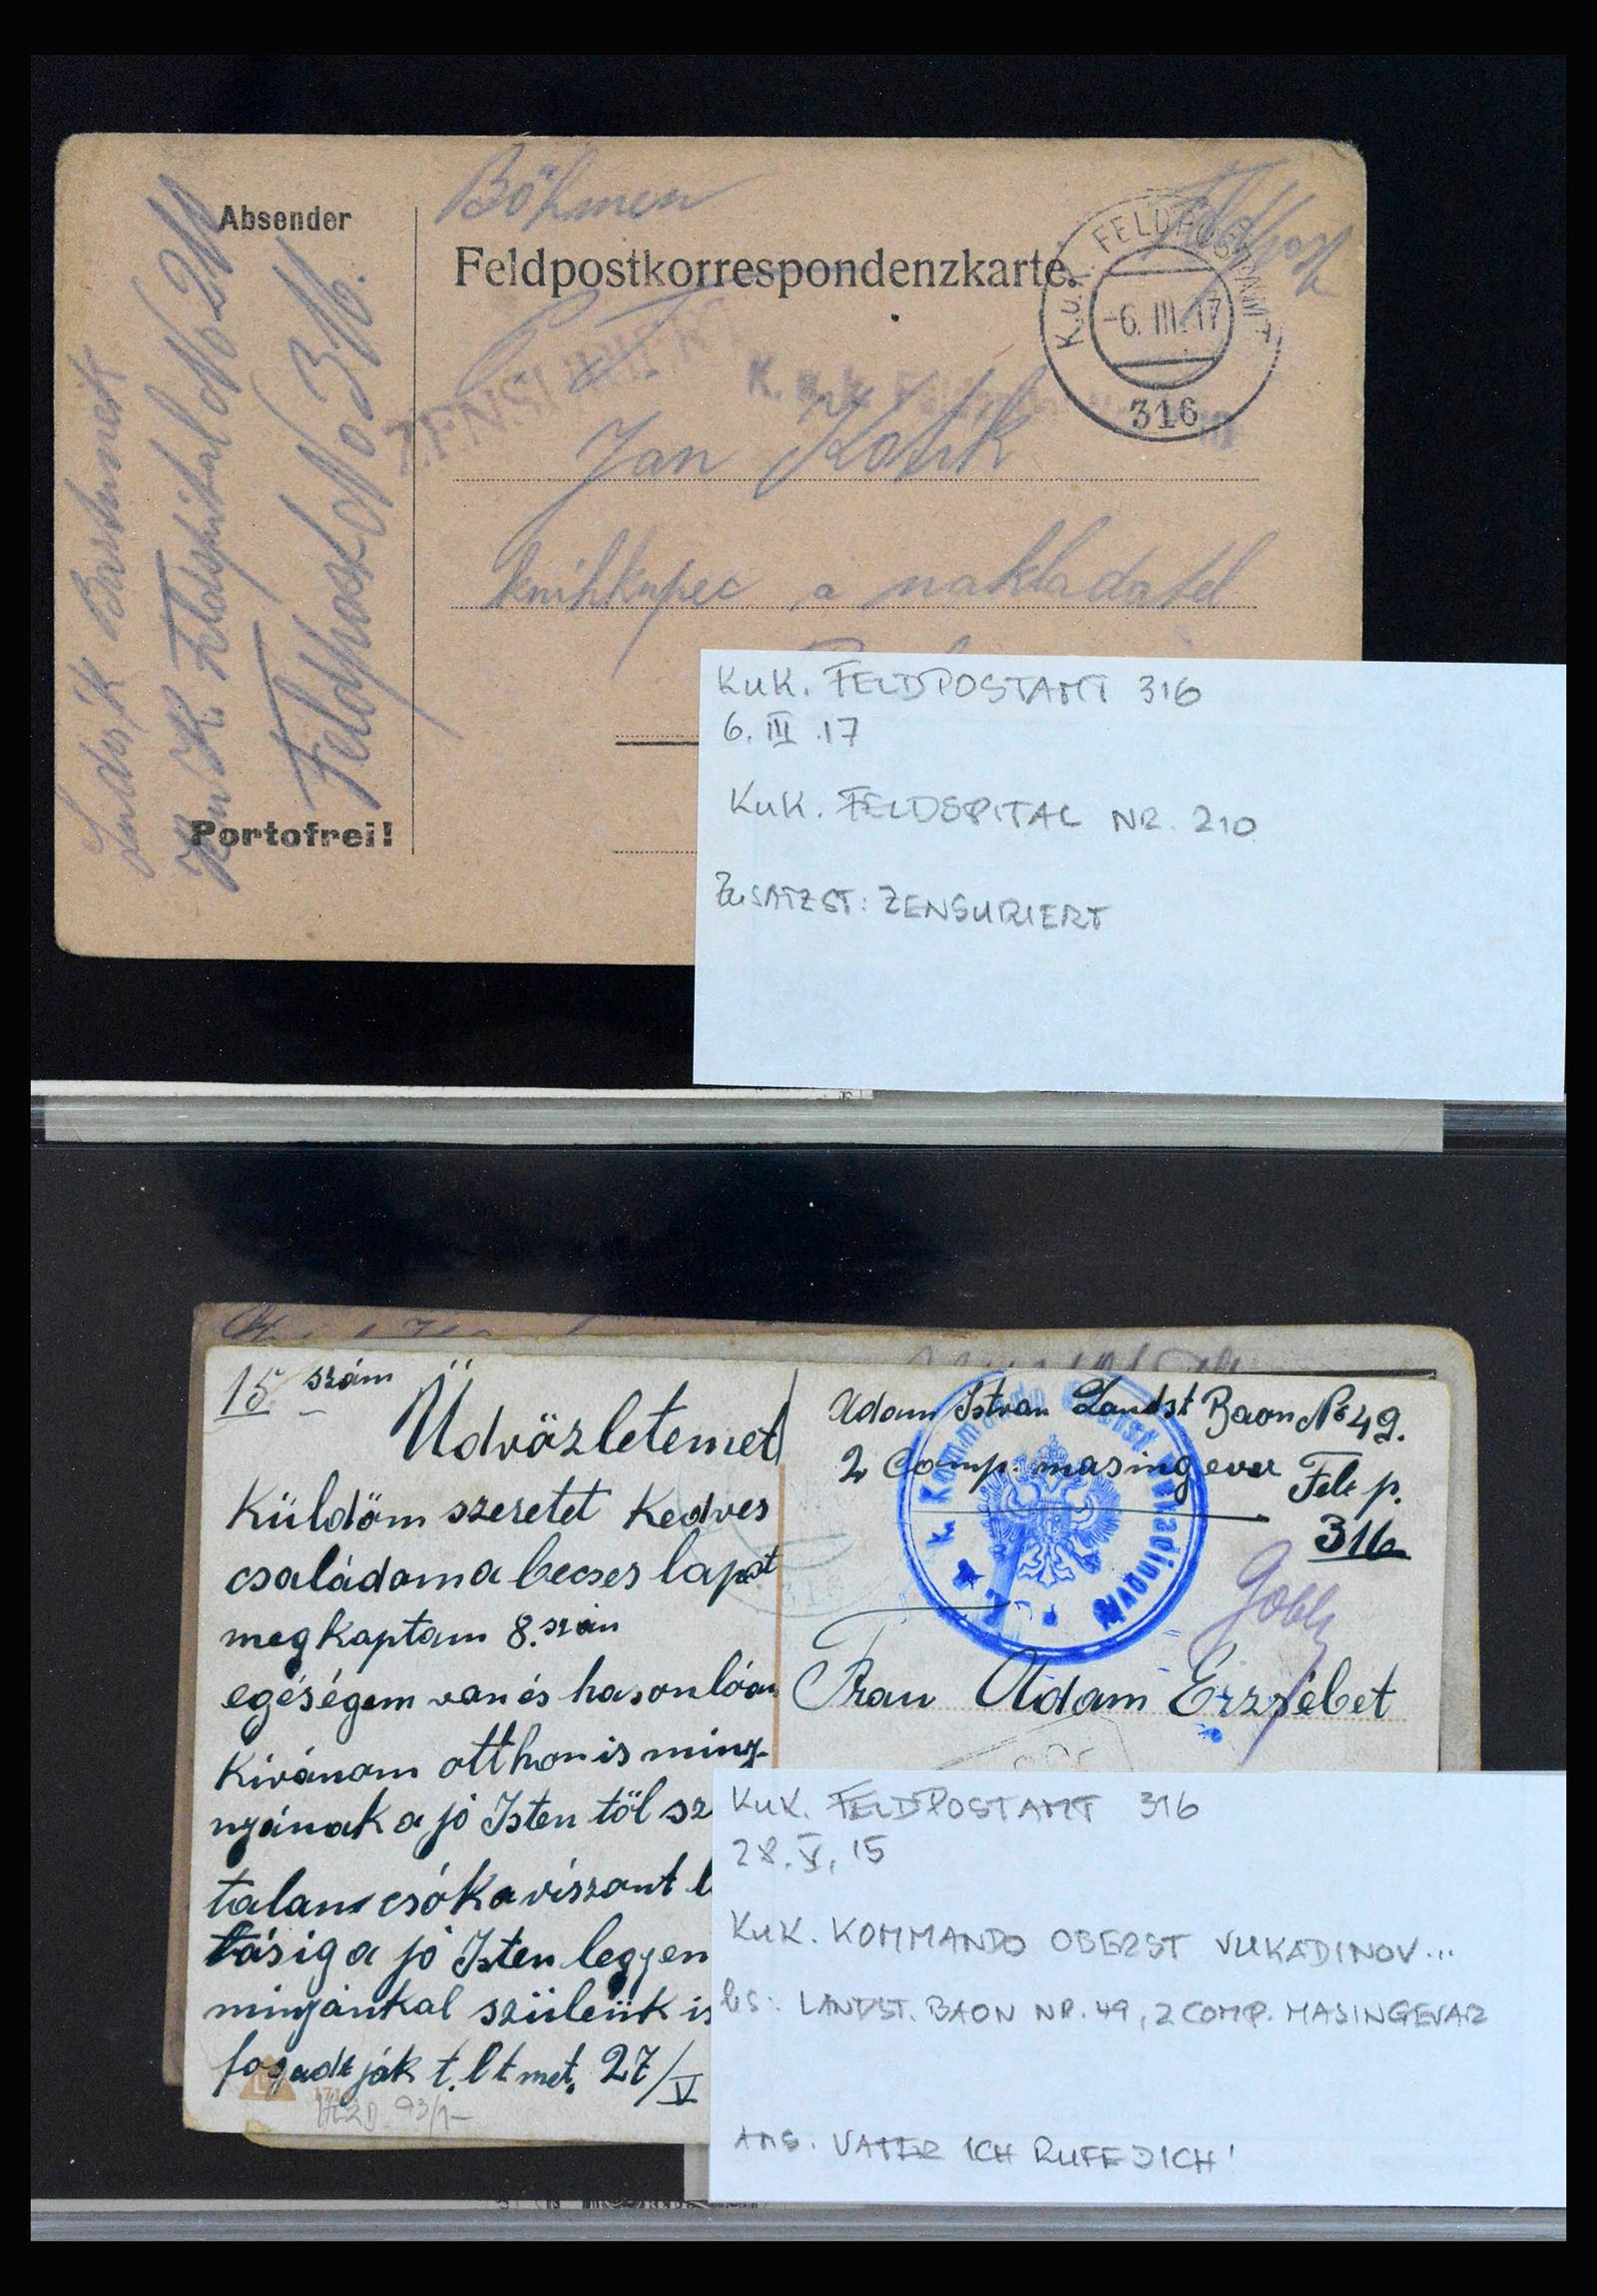 Absender
K.u.K. Feldspital No 210
Feldpost No 316.
Portofrei!
Böhmen
Feldpost
Feldpostkorrespondenzkarte.
K.u.K. FELDPOSTAMT
-6. III. 17
316
ZENSURIERT
Jan Kotik
knihkupec a nakladatel
KuK. FELDPOSTAMT 316
6. III .17
KuK. FELDSPITAL NR. 210
ZUSATZST: ZENSURIERT
15 szám
Üdvözletemet
Küldöm szeretet Kedves
családom a becses lapot
meg kaptam 8. szám
egéségem van és hasonlóan
Kivánom otthon is miny-
nyának a jó Isten töl sz
talan csóka viszont l
tásig a jó Isten legyen
minyánkal szüleük is
fogadt ják t. l t met. 27/V
Adam Istvan Landst Baon No 49.
2 Comp. masingever Feld p.
316
K. u. K. Kommando Oberst Vukadinovic
Frau Adam Erzsébet
KUK. FELDPOSTAMT 316
28. V. 15
KUK. KOMMANDO OBERST VUKADINOV...
hs: LANDST. BAON NR. 49, 2 COMP. MASINGEVAR
ANS. VATER ICH RUFE DICH!